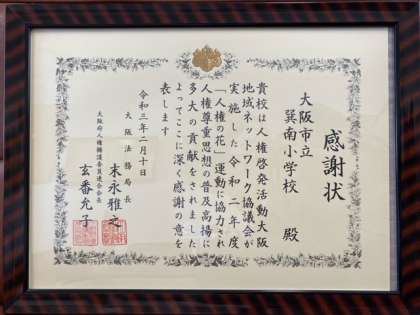 感謝状
大阪市立
巽南小学校 殿
貴校は人権啓発活動大阪
地域ネットワーク協議会が
実施した令和二年度
「人権の花」運動に協力され
人権尊重思想の普及高揚に
多大の貢献をされました
よってここに深く感謝の意を
表します
令和三年二月十日
大阪法務局長
末永雅之
大阪府人権擁護委員連合会長
玄番允子